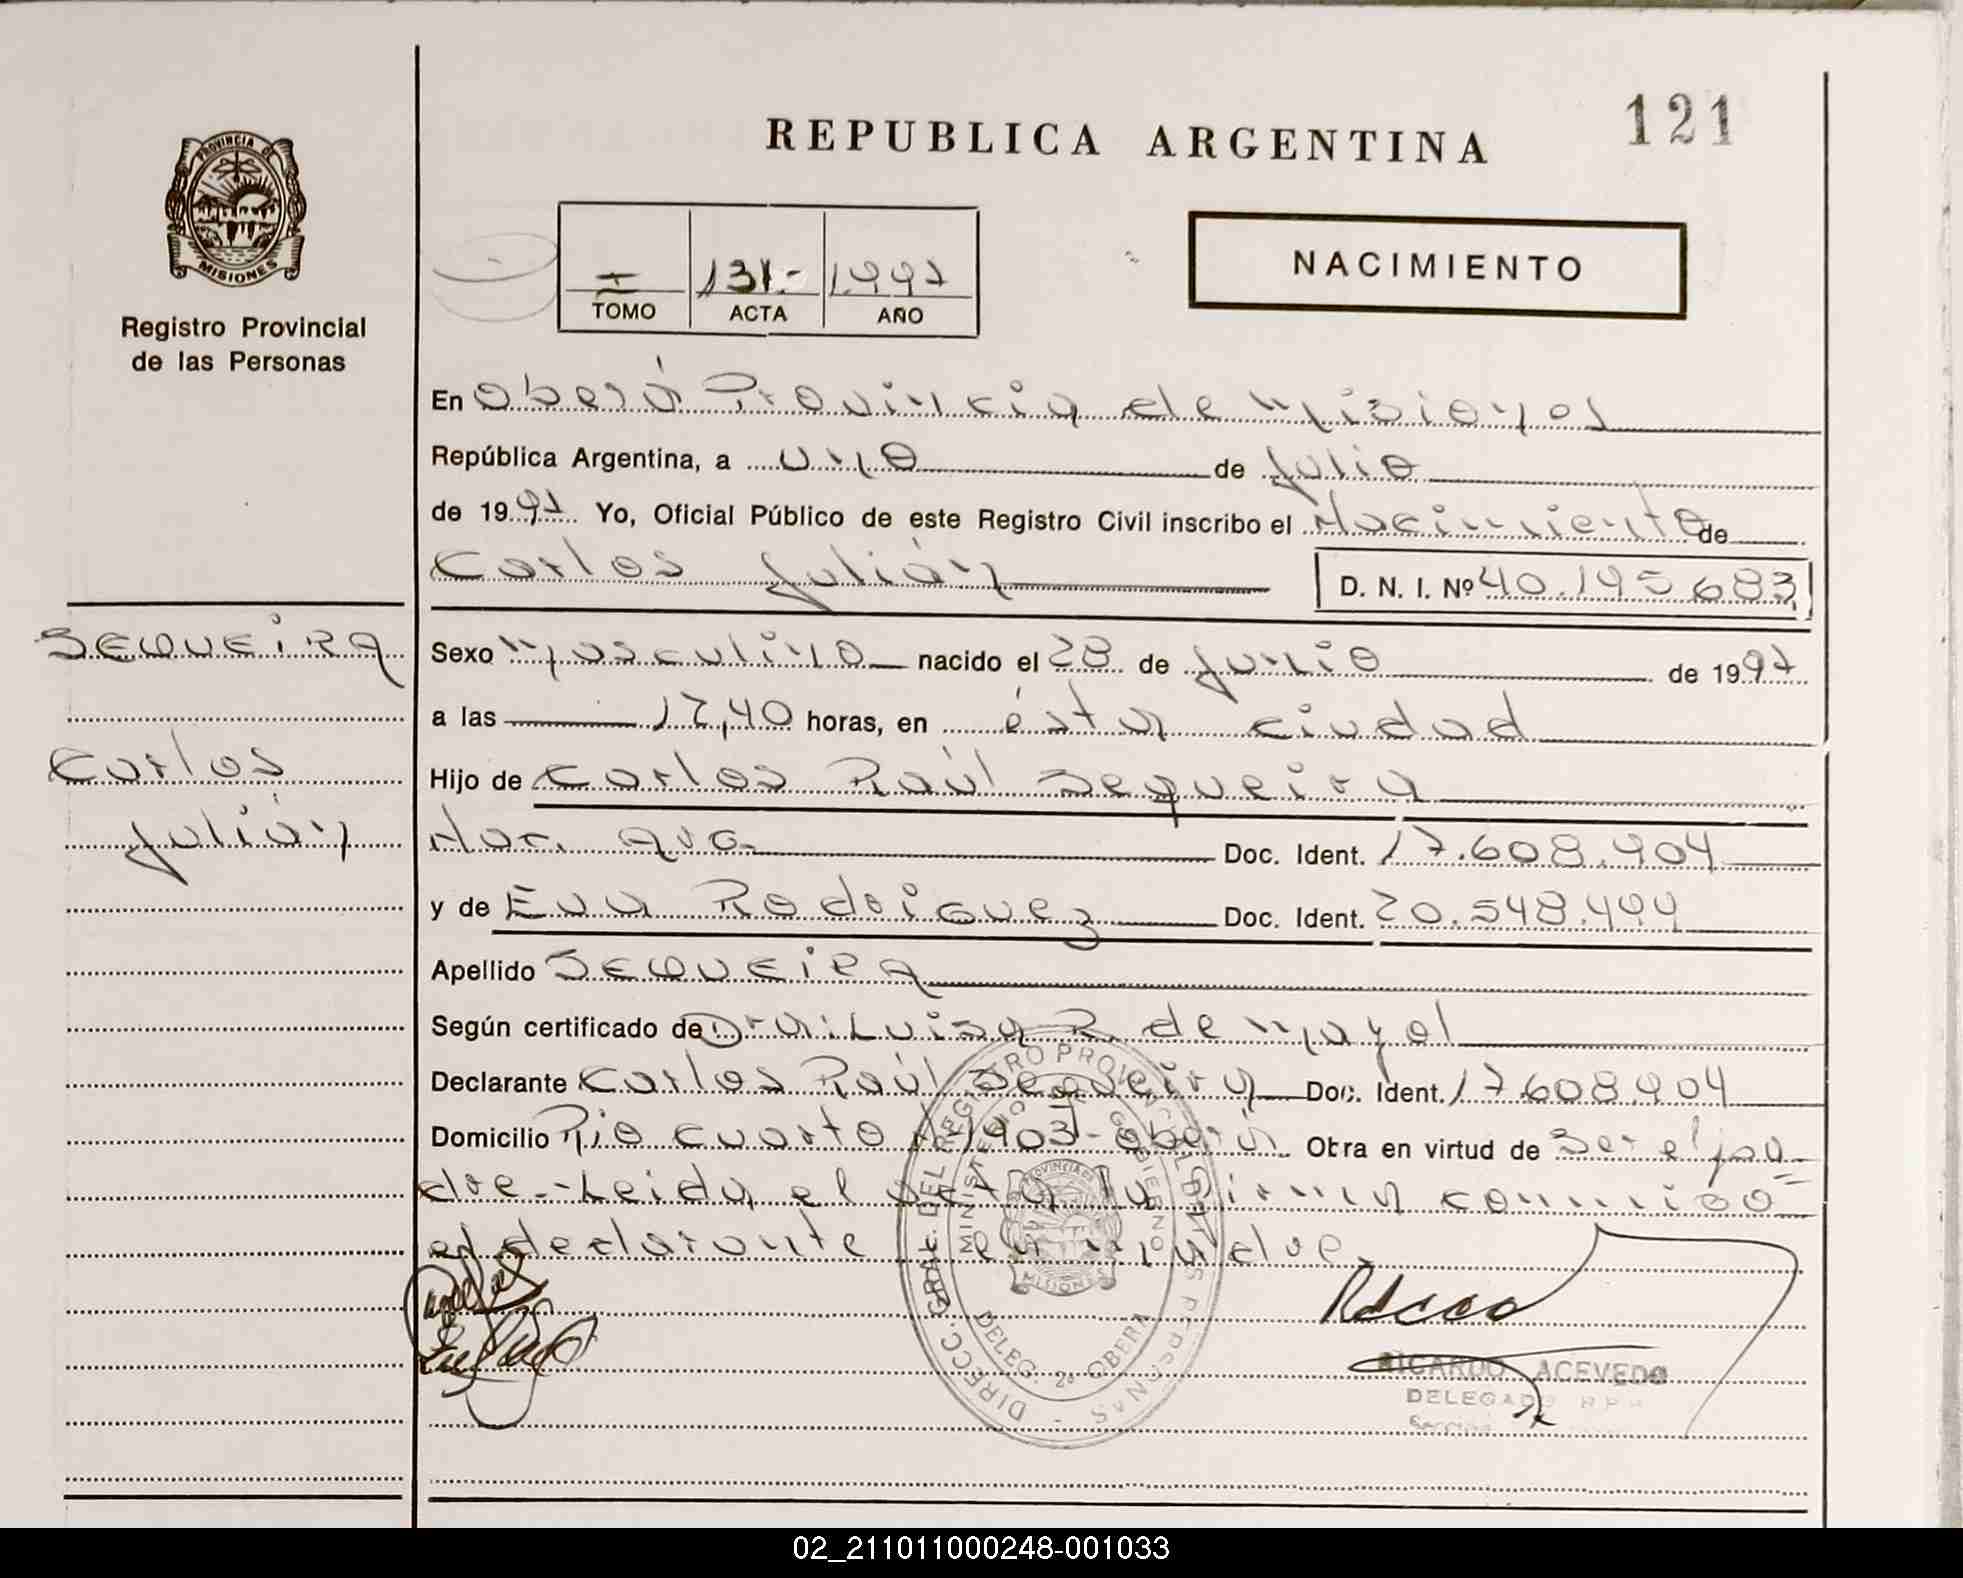 121
REPUBLICA ARGENTINA
PROVINCIA DE
MISIONES
Registro Provincial
de las Personas
I 131.- 1.997
TOMO ACTA AÑO
NACIMIENTO
En Oberá Provincia de Misiones
República Argentina, a uno de Julio
de 1997 Yo, Oficial Público de este Registro Civil inscribo el Nacimiento de
Carlos Julián D. N. I. Nº 40.195.683
SEQUEIRA
Carlos
Julián
Sexo Masculino nacido el 28 de Junio de 1997
a las 17,40 horas, en ésta ciudad
Hijo de Carlos Raúl Sequeira
Nac. Arg. Doc. Ident. 17.608.904
y de Eva Rodriguez Doc. Ident. 20.548.499
Apellido SEQUEIRA
Según certificado de Dra. Luisa R. de Mayol
Declarante Carlos Raúl Sequeira Doc. Ident. 17.608.904
Domicilio Rio Cuarto Nº 903 - Oberá Obra en virtud de Ser el pa=
dre.- Leida el acta la firman conmigo
el declarante la madre
DIRECC. GRAL. DEL REGISTRO PROVINCIAL DE LAS PERSONAS
MINISTERIO DE GOBIERNO
PROVINCIA DE
MISIONES
DELEG. 2ª OBERA
RICARDO ACEVEDO
DELEGADO R P P
02_211011000248-001033